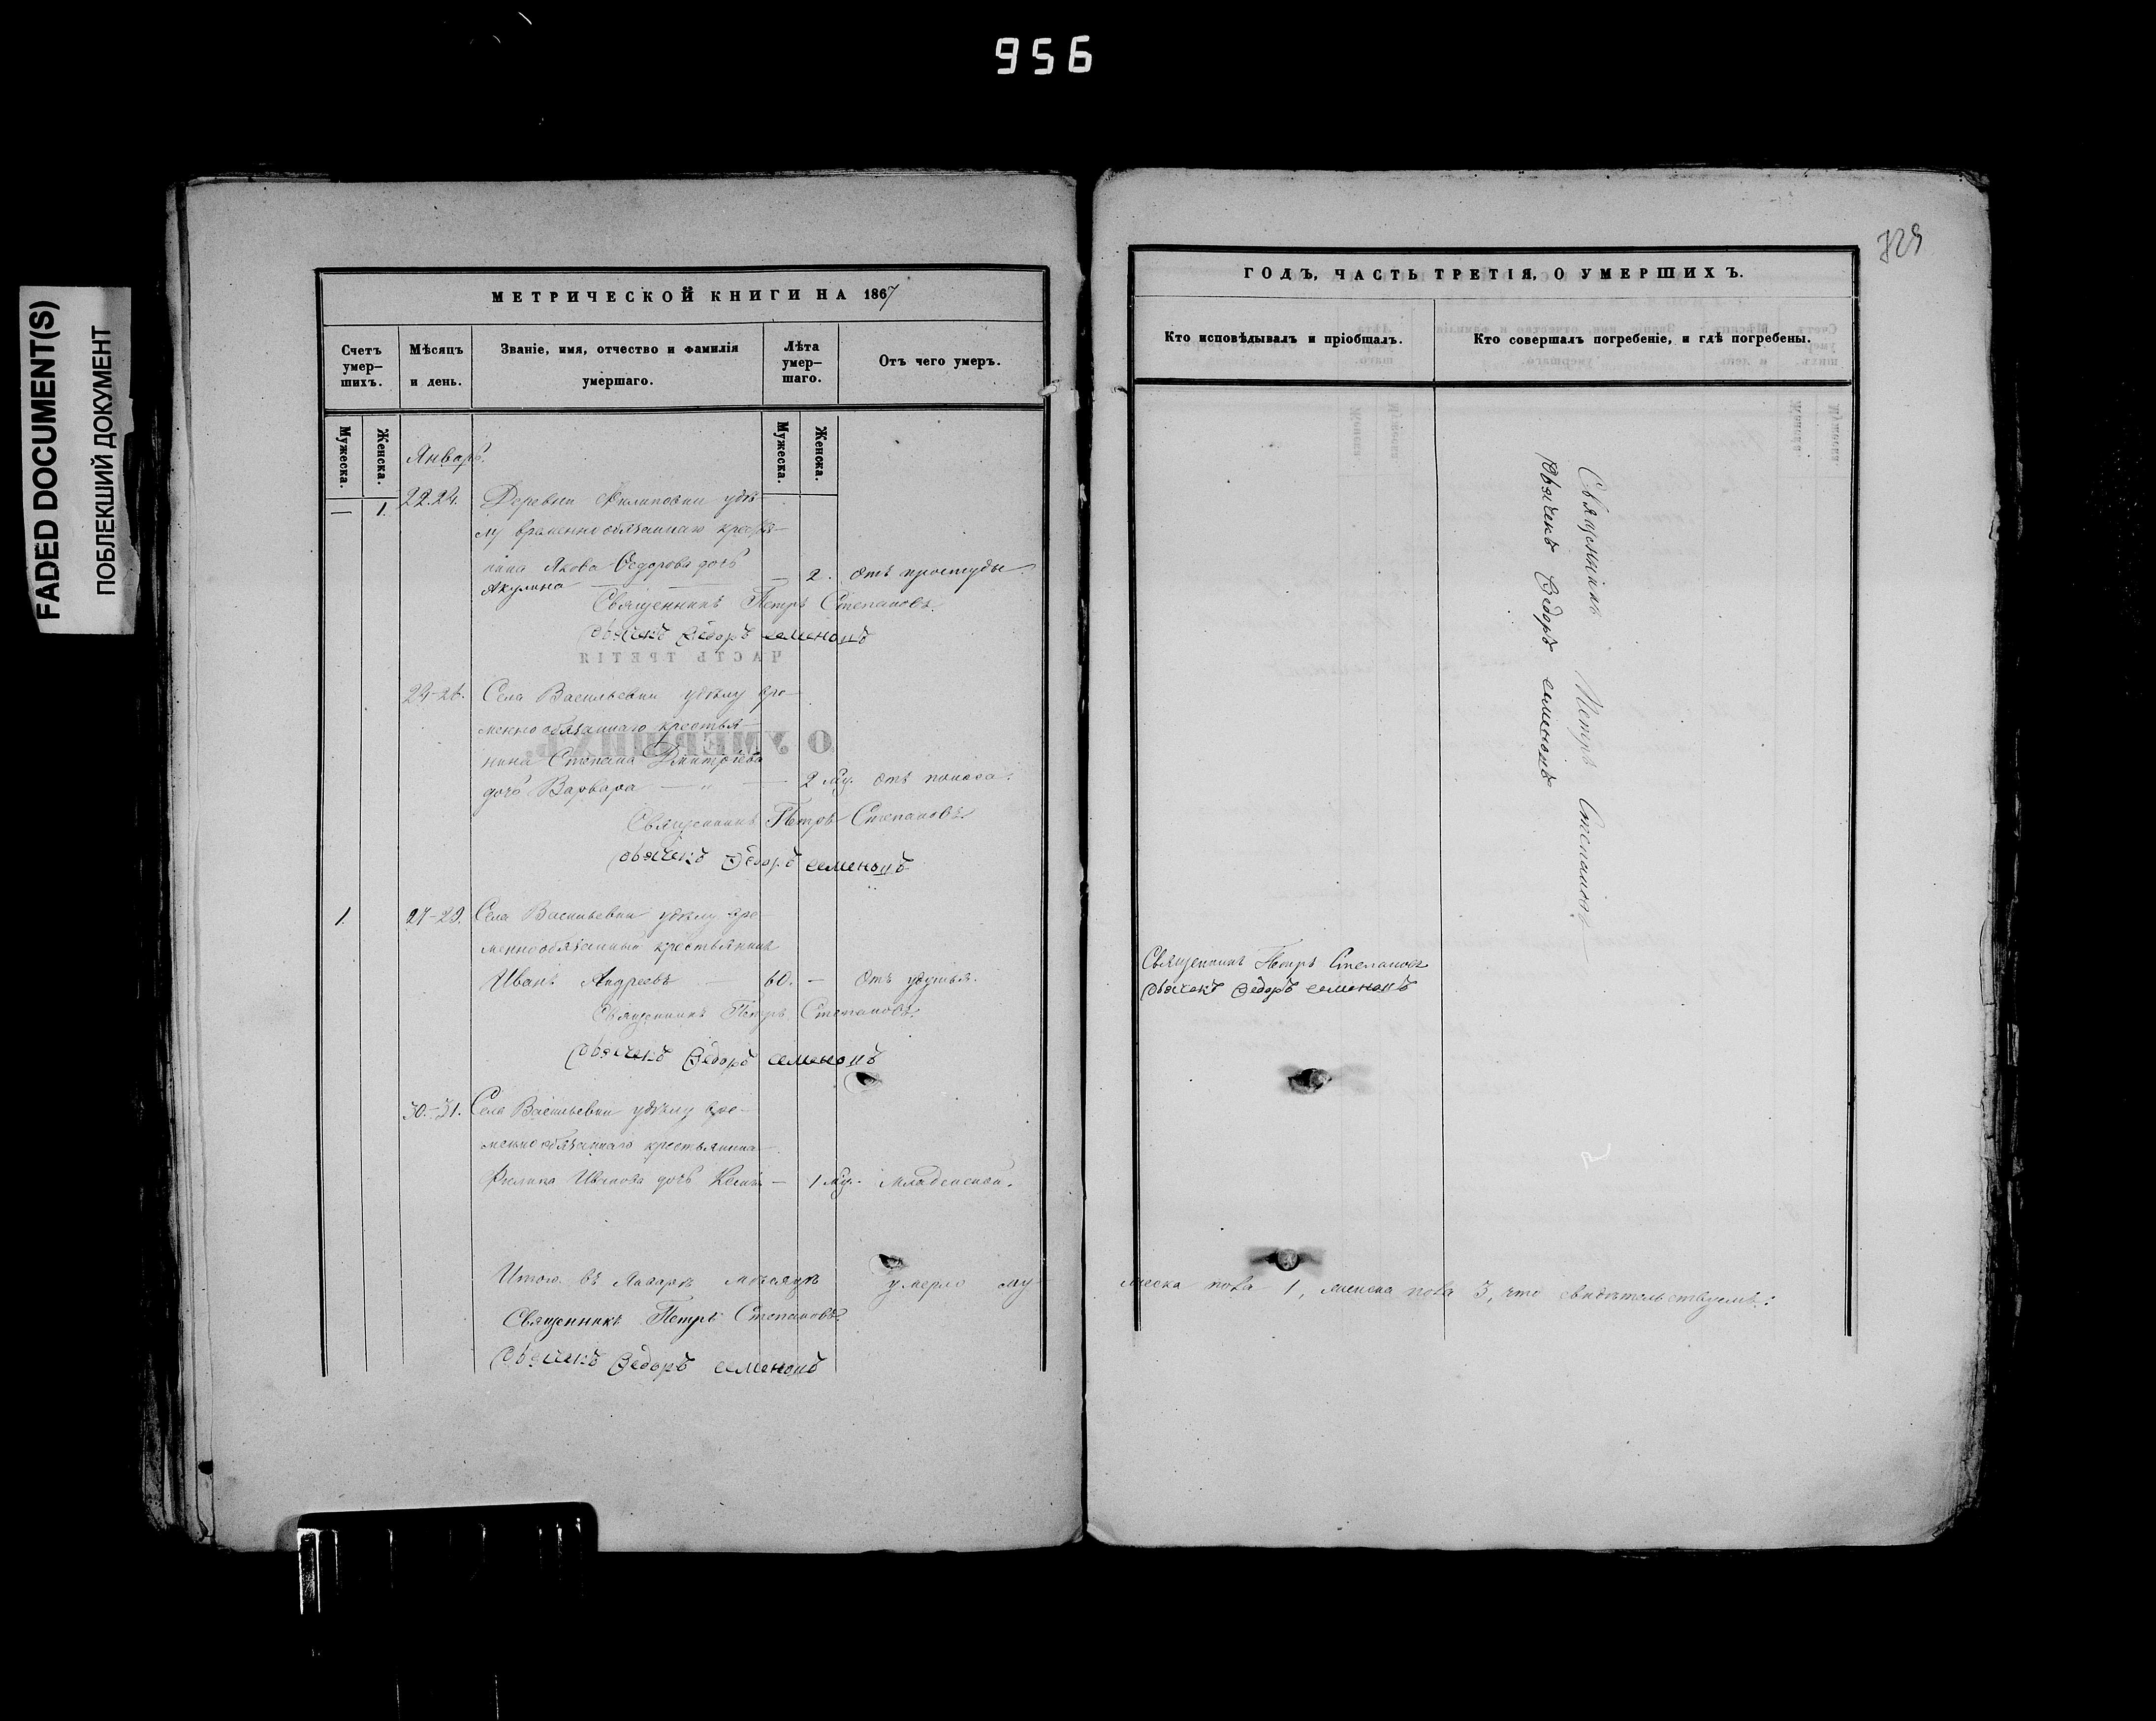 956
FADED DOCUMENT(S)
ПОБЛЕКШИЙ ДОКУМЕНТ
МЕТРИЧЕСКОЙ КНИГИ НА 1867
Счетъ умер-шихъ.
Мѣсяцъ и день.
Званіе, имя, отчество и фамилія умершаго.
Лѣта умер-шаго.
Отъ чего умеръ.
Мужеска.
Женска.
Мужеска.
Женска.
Январь.
— 1. 22.24. Деревни Филиповки удѣ
лу временнообязаннаго крестья-
нина Якова Ѳедорова дочь
Акулина — 2. Отъ простуды.
Священникъ Петръ Степановъ.
Дьячекъ Ѳедоръ Семеновъ
24-26. Села Васильевки удѣлу вре-
меннообязаннаго крестья-
нина Степана Дмитріева
дочь Варвара — " — 2 Мц. Отъ поноса.
Священникъ Петръ Степановъ.
Дьячекъ Ѳедоръ Семеновъ
1. 27-29. Села Васильевки удѣлу вре
меннообязанный крестьянинъ
Иванъ Андреевъ — 60. — Отъ удушья.
Священникъ Петръ Степановъ.
Дьячекъ Ѳедоръ Семеновъ
30.-31. Села Васильевки удѣлу вре-
меннообязаннаго крестьянина
Филипа Иванова дочь — 1 Мц. Младенской.
Итого въ Январѣ мѣсяцѣ умерло му
Священникъ Петръ Степановъ.
Дьячекъ Ѳедоръ Семеновъ
ГОДЪ, ЧАСТЬ ТРЕТІЯ, О УМЕРШИХЪ.
Кто исповѣдывалъ и пріобщалъ.
Кто совершалъ погребеніе, и гдѣ погребены.
Священникъ Петръ Степановъ
Дьячекъ Ѳедоръ Семеновъ
Священникъ Петръ Степановъ
Дьячекъ Ѳедоръ Семеновъ
жеска пола 1, женска пола 3, что свидѣтельствуемъ: